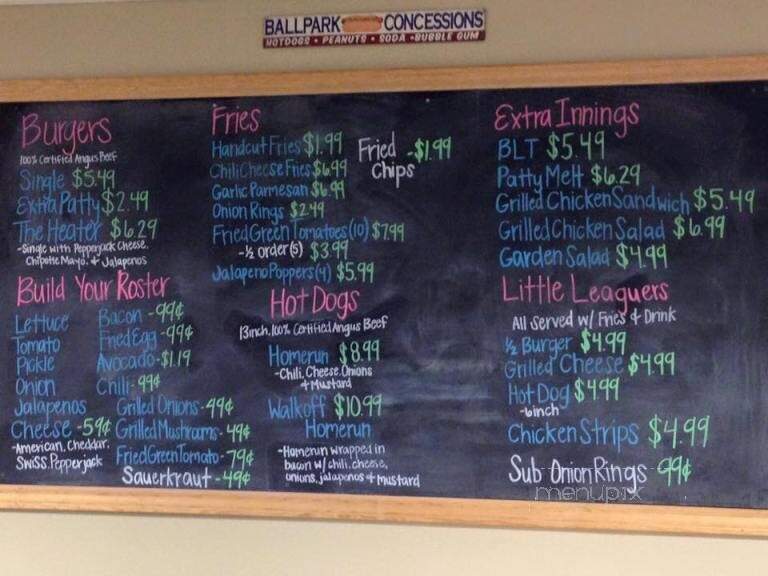 BALLPARK CONCESSIONS
HOTDOGS • PEANUTS • SODA • BUBBLE GUM
Burgers
100% Certified Angus Beef
Single $5.49
Extra Patty $2.49
The Heater $6.29
-Single with Pepperjack Cheese,
Chipotle Mayo, + Jalapenos
Build Your Roster
Lettuce
Tomato
Pickle
Onion
Jalapenos
Cheese -59¢
-American, Cheddar,
Swiss, Pepperjack
Bacon -99¢
Fried Egg -99¢
Avocado-$1.19
Chili-99¢
Grilled Onions-49¢
Grilled Mushrooms-49¢
Fried Green Tomato-79¢
Sauerkraut-49¢
Fries
Handcut Fries $1.99
Chili Cheese Fries $6.99
Garlic Parmesan $6.99
Onion Rings $2.49
Fried Green Tomatoes (10) $7.99
-½ order (5) $3.99
Jalapeno Poppers (4) $5.99
Fried -$1.99
Chips
Hot Dogs
13inch, 100% Certified Angus Beef
Homerun $8.99
-Chili, Cheese, Onions
+ Mustard
Walkoff $10.99
Homerun
-Homerun wrapped in
bacon w/ chili, cheese,
onions, jalapenos + mustard
Extra Innings
BLT $5.49
Patty Melt $6.29
Grilled Chicken Sandwich $5.49
Grilled Chicken Salad $6.99
Garden Salad $4.99
Little Leaguers
All served w/ Fries + Drink
½ Burger $4.99
Grilled Cheese $4.99
Hot Dog $4.99
-6inch
Chicken Strips $4.99
Sub Onion Rings 99¢
menupix